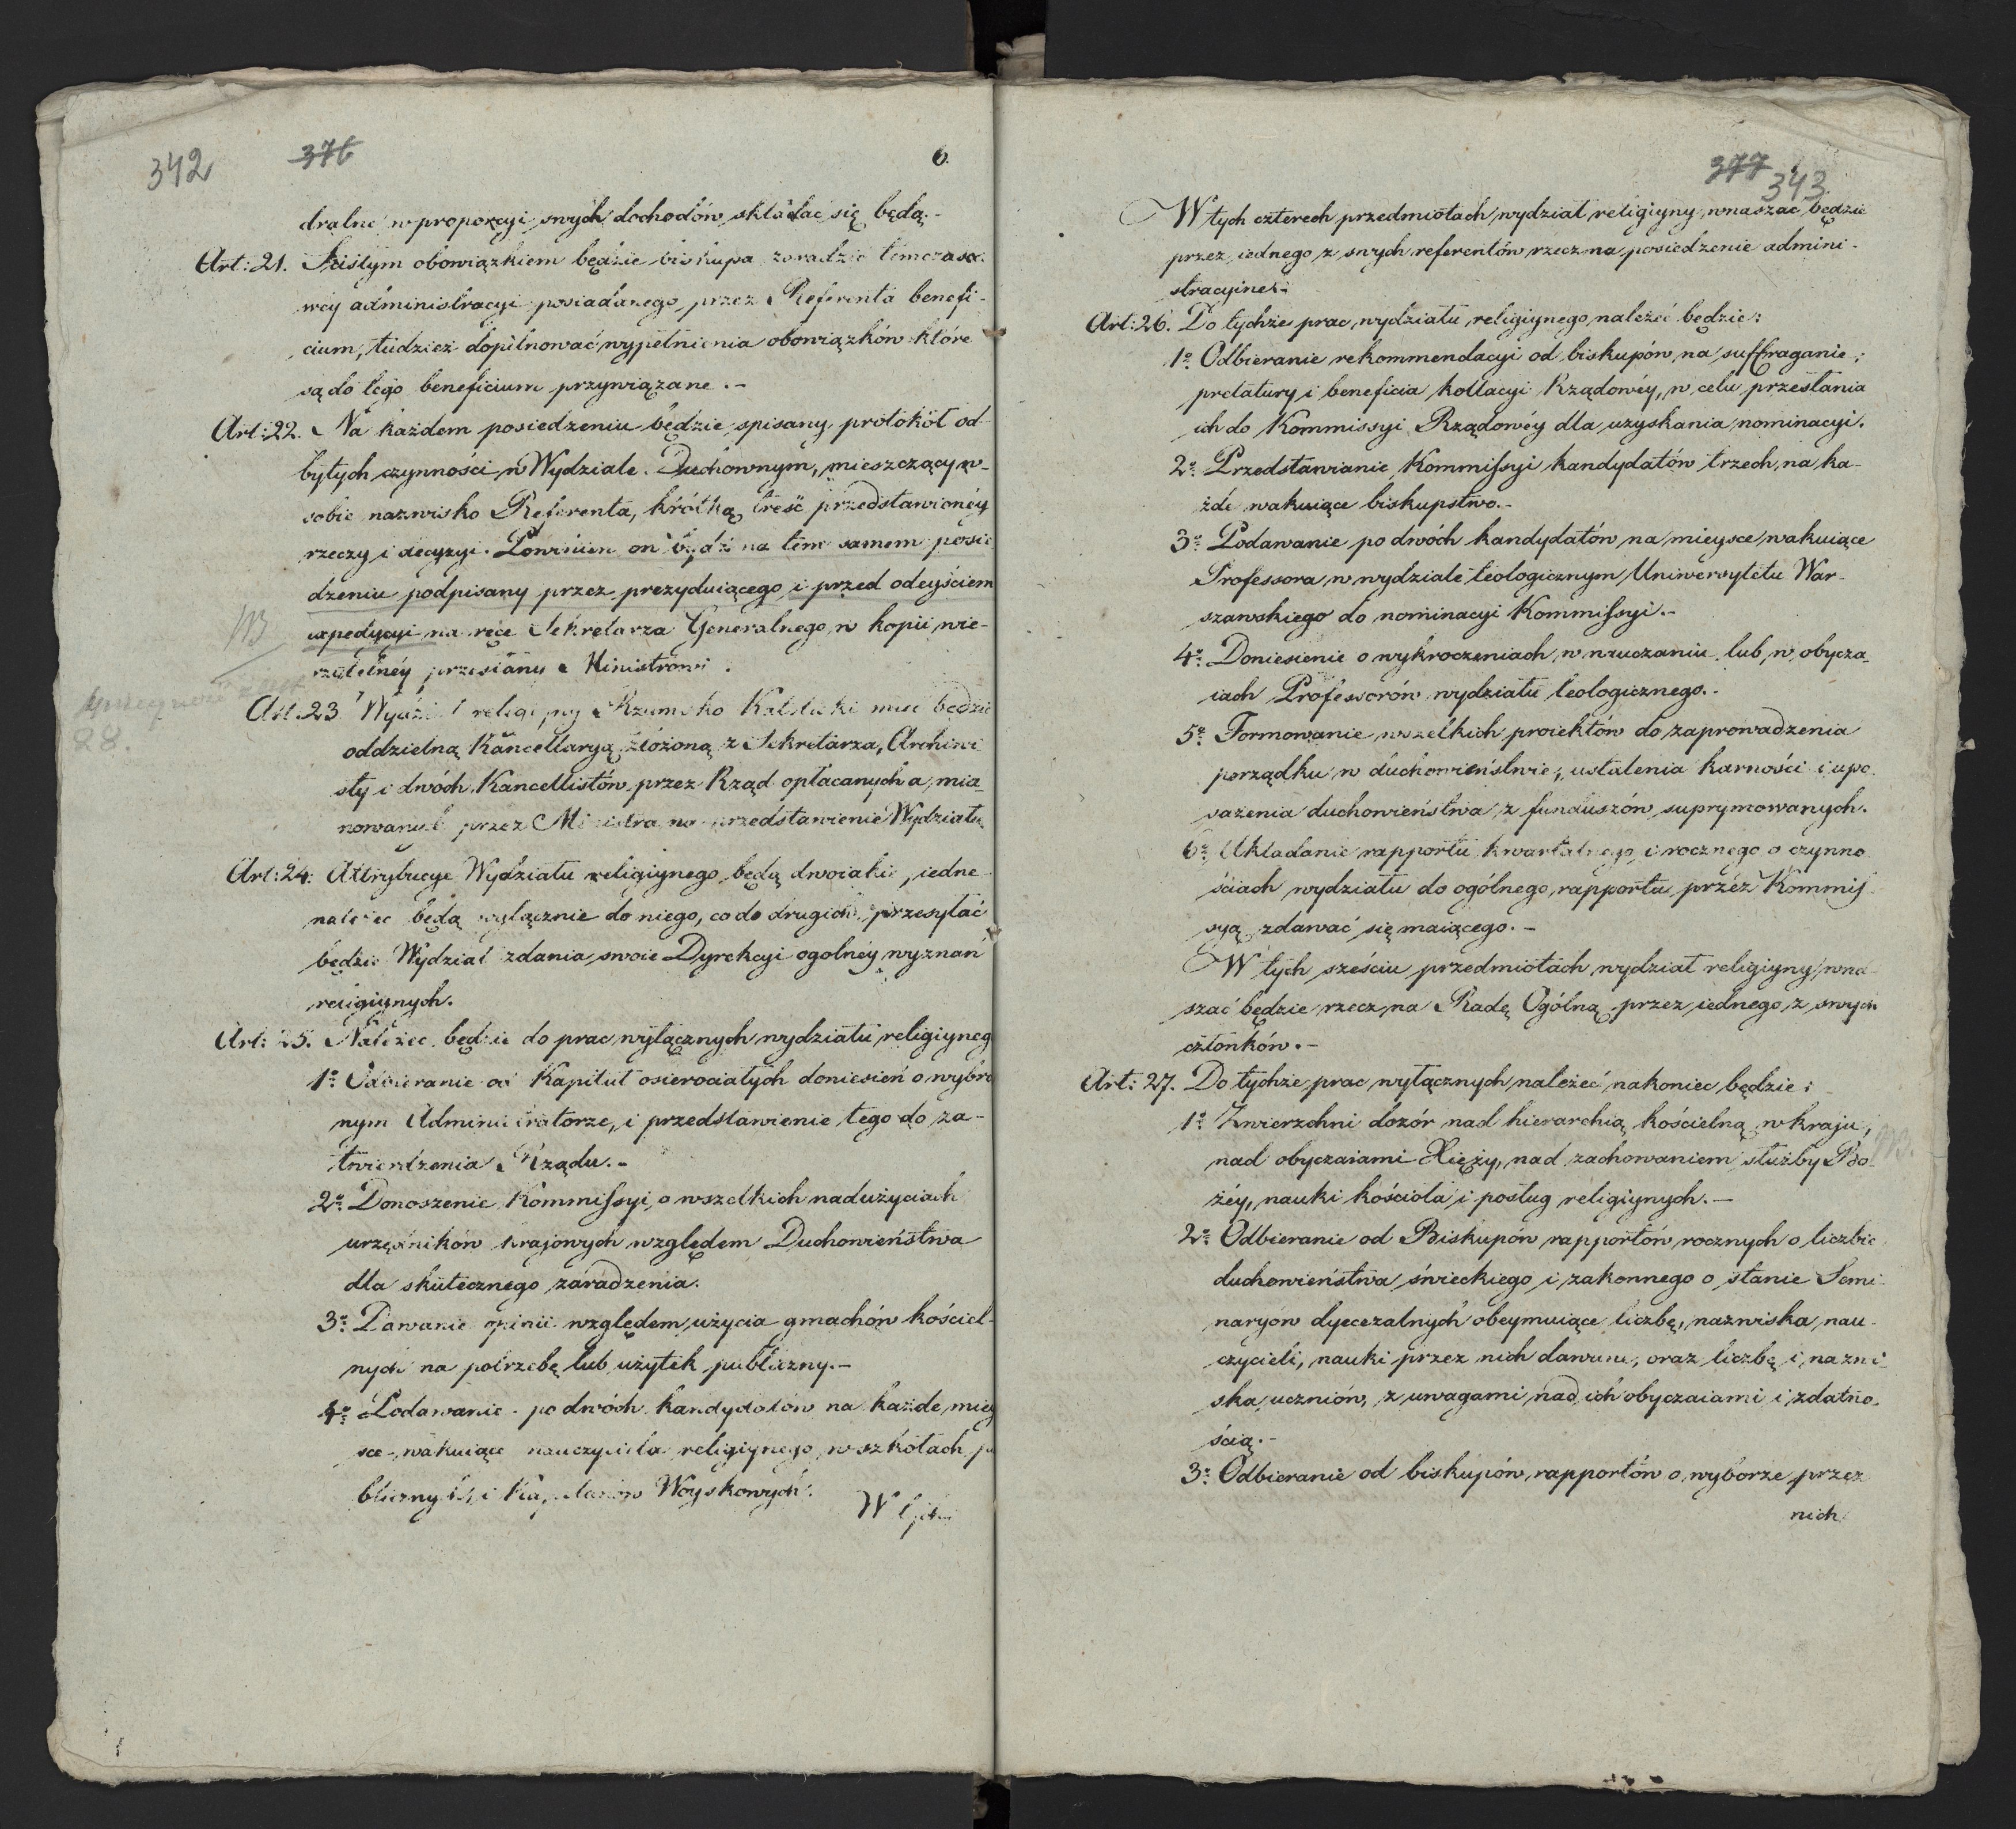 342
376
6.
dralne w proporcyi swych dochodów składać się będą.-
Art: 21. Scisłym obowiązkiem będzie biskupa zaradzić temczaso-
wey administracyi posiadanego przez Referenta benefi-
cium, tudzież dopilnować wypełnienia obowiązków które
są do tego beneficium przywiązane.-
Art: 22. Na każdem posiedzeniu będzie spisany protokół od-
bytych czynności w Wydziale Duchownym, mieszczący w-
sobie nazwisko Referenta, krótką treść przedstawionéy
rzeczy i decyzyi. Powinien on bydź na tém samem posie
dzeniu podpisany przez prezyduiącego i przed odeyściem
expedycyi na ręce Sekretarza Generalnego w kopii wie-
rzytelnéy przesłany Ministrowi.
28.
Art. 23 Wydział religiyny Rzymsko Katolicki mieć będzie
oddzielną Kancellaryą złożoną z Sekretarza, Archiwi
sty i dwóch Kancellistów przez Rząd opłacanych a mia-
nowanych przez Ministra na przedstawienie Wydziału
Art: 24. Attrybucye Wydziału religiynego będą dwoiakie, iedne
należeć będą wyłącznie do niego, co do drugich przesyłać
będzie Wydział zdania swoie Dyrekcyi ogolnéy wyznań
religiynych.
Art: 25. Należeć będzie do prac wyłącznych wydziału religiyneg
1o Odbieranie od Kapituł osierociałych doniesień o wybra
nym Administratorze, i przedstawienie tego do za-
twierdzenia Rządu.-
2o Donoszenie Kommissyi o wszelkich nadużyciach
urzędników krajowych względem Duchowieństwa
dla skutecznego zaradzenia.
3o Dawanie opinii względem użycia gmachów kościel-
nych na potrzebę lub użytek publiczny.-
4o Podawanie po dwóch kandydatów na każde miey
sce wakuiące nauczyciela religiynego w szkołach pu
blicznych, i Kapelanów Woyskowych.
W tych
377
343
W tych czterech przedmiotach wydział religiyny wnaszać będzie
przez iednego z swych referentów rzecz na posiedzenie admini-
stracyine.-
Art: 26. Do tychże prac wydziału religiynego należeć będzie:
1o Odbieranie rekommendacyi od biskupów na suffraganie,
prelatury i beneficia kollacyi Rządowéy, w celu przesłania
ich do Kommissyi Rządowéy dla uzyskania nominacyi.
2o Przedstawianie Kommissyi kandydatów trzech na ka-
żde wakuiące biskupstwo.-
3o Podawanie po dwóch kandydatów na mieysce wakuiące
Professora w wydziale teologicznym Uniwersytetu War-
szawskiego do nominacyi Kommissyi.-
4o Doniesienie o wykroczeniach w nauczaniu lub w obycza-
iach Professorów wydziału teologicznego.-
5o Formowanie wszelkich proiektów do zaprowadzenia
porządku w duchowieństwie, ustalenia karności i upo-
sażenia duchowieństwa z funduszów suprymowanych.
6o Układanie rapportu kwartalnego i rocznego o czynno-
ściach wydziału do ogólnego rapportu przez Kommis
syą zdawać się maiącego.-
W tych sześciu przedmiotach wydział religiyny wna-
szać będzie rzecz na Radę Ogólną przez iednego z swych
członków.-
Art: 27. Do tychże prac wyłącznych należeć nakoniec będzie:
1o Zwierzchni dozór nad hierarchią kościelną w kraju,
nad obyczaiami Xięży, nad zachowaniem służby Bo-
żéy, nauki kościoła i posług religiynych.-
2o Odbieranie od Biskupów rapportów rocznych o liczbie
duchowieństwa świeckiego i zakonnego o stanie Semi-
naryów dyecezalnych obeymuiące liczbę, nazwiska nau-
czycieli, nauki przez nich dawane, oraz liczbę i nazwi-
ska uczniów, z uwagami nad ich obyczaiami i zdatno-
ścią.-
3o Odbieranie od biskupów rapportów o wyborze przez
nich